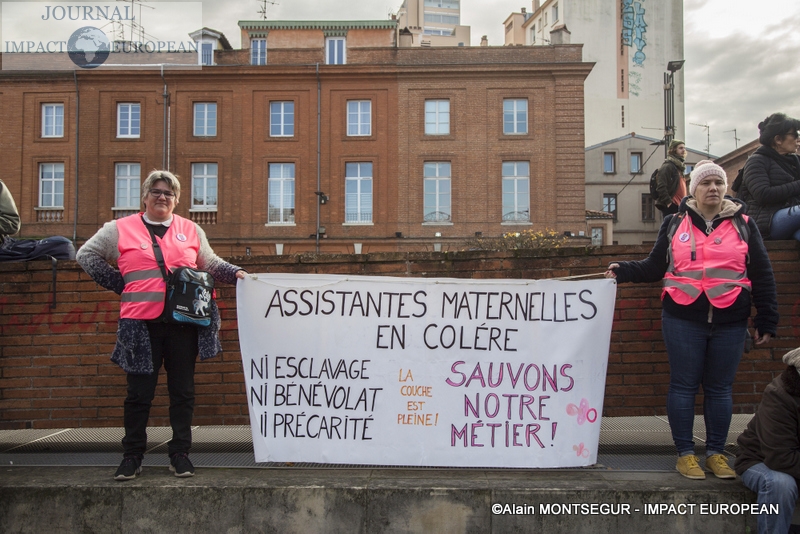 JOURNAL
IMPACT EUROPEAN
ASSISTANTES MATERNELLES
EN COLÉRE
NI ESCLAVAGE
NI BÉNÉVOLAT
II PRÉCARITÉ
LA
COUCHE
EST
PLEINE!
SAUVONS
NOTRE
MÉTIER!
©Alain MONTSEGUR - IMPACT EUROPEAN